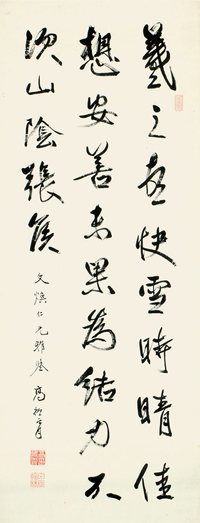 羲之快雪時晴佳
想安善未果為結力不
次山陰張侯
文仁兄雅鑒 高振霄